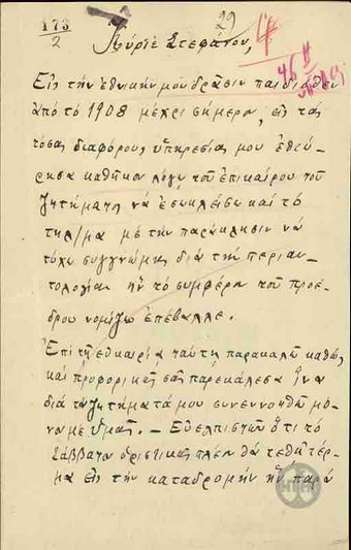 173
2
29
Κύριε Στεφάνου,
Εἰς τὴν ἐθνικήν μου δρᾶσιν
ἀπὸ τὸ 1908 μέχρι σήμερον, εἰς τὰς
τόσας διαφόρους ὑπηρεσίας μου ἐθεώ-
ρησα καθῆκον λόγῳ τοῦ ἐπικαίρου τοῦ
ζητήματος νὰ ἐσωκλείσω καὶ τὸ
τηλ/μα μὲ τὴν παράκλησιν νὰ
τύχω συγγνώμης διὰ τὴν περιαυ-
τολογίαν ἣν τὸ συμφέρον τοῦ προέ-
δρου νομίζω ἐπέβαλλε.
Ἐπὶ τῇ εὐκαιρίᾳ ταύτῃ παρακαλῶ καθὼς
καὶ προφορικῶς σᾶς παρεκάλεσα ἵνα
διὰ τὰ ζητήματά μου συνεννοηθῶ μό-
νο μὲ Ὑμᾶς. – Εὐελπιστῶν ὅτι τὸ
Σάββατον ὁριστικῶς πλέον θὰ τεθῇ τέρ-
μα εἰς τὴν καταδρομὴν ἣν παρὰ